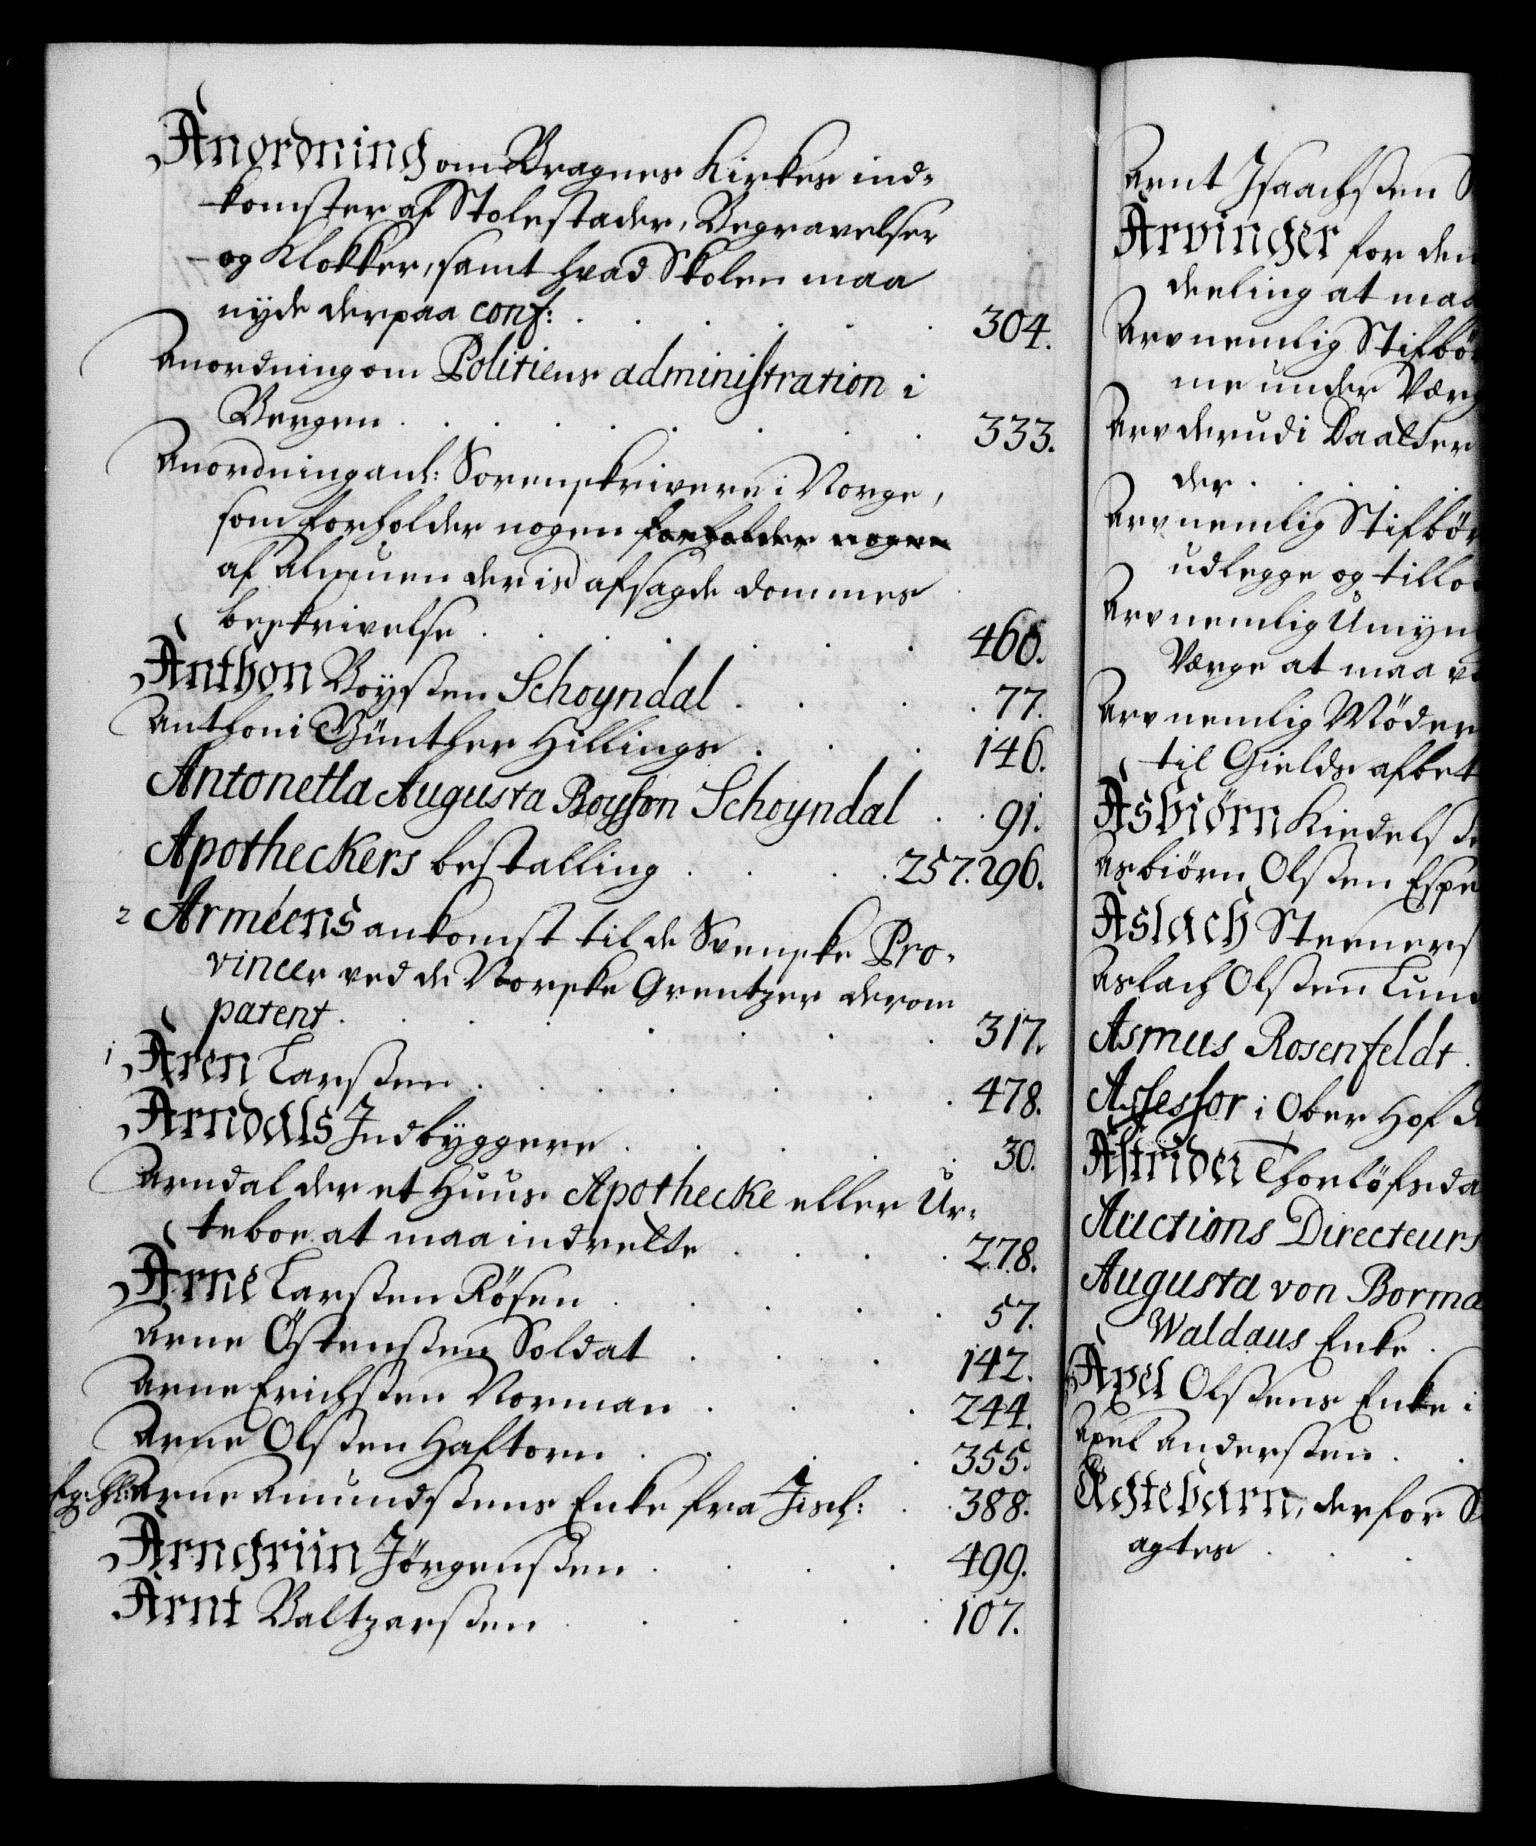 Anordning om Bragnes Kirkes ind-
komster af Stolestader, Begravelser
og Klokker, samt hvad Skolen maa
nyde derpaa conf: . . . . . . 304.
Anordning om Politiens administration i
Bergen . . . . . . . 333.
Anordning anl: Sorenskrivere i Norge,
som forholder nogen forholder nogen
af Almuen deris afsagde dommes
beskrivelse . . . . . . 466.
Anthon Boyssen Schoyndal . . . . 77.
Anthoni Günther Hillings . . . 146.
Antonetta Augusta Boysson Schoyndal . . 91.
Apotheckers bestalling . . . . 257. 296.
2 Arméens ankomst til de Svenske Pro-
vincer ved de Norske Grentzer derom
patent . . . . . . 317.
1 Aren Larssen . . . . . . 478.
Arndals Indbyggere . . . . . 30.
Arndal der et Huus Apothecke eller Ur-
teboe at maa indrette . . . . 278.
Arne Larssen Rösen . . . . . 57.
Arne Östenssen Soldat . . . . 142.
Arne Erichssen Norman . . . 244.
Arne Olssen Haftorn . . . . 355.
Arne Amundssens Enke fra Fisch: . . 388.
Arngriin Jörgenssen . . . . 499.
Arnt Baltzarssen . . . . 107.
Arnt Isaachssen
Arvinger for den
deeling at maa
Arv nemlig Stifbör
me under Værg
Arv derudi Daatter
der . . . .
Arv nemlig Stifbör
udlegge og tillo
Arv nemlig Umyn
Værge at maa
Arv nemlig Möder
til Gields afbet
Asbiörn Kiedelsse
Asbiörn Olssen Espe
Aslach Steeners
Aslach Olssen Lun
Asmus Rosenfeldt .
Assessor i Ober Hof
Astrider Thorlöfsda
Auctions Directeurs
Augusta von Borma
Waldaus Enke .
Axel Olssens Enke i
Axel Anderssen . .
Ægtebarn, derfor
agtes . . .